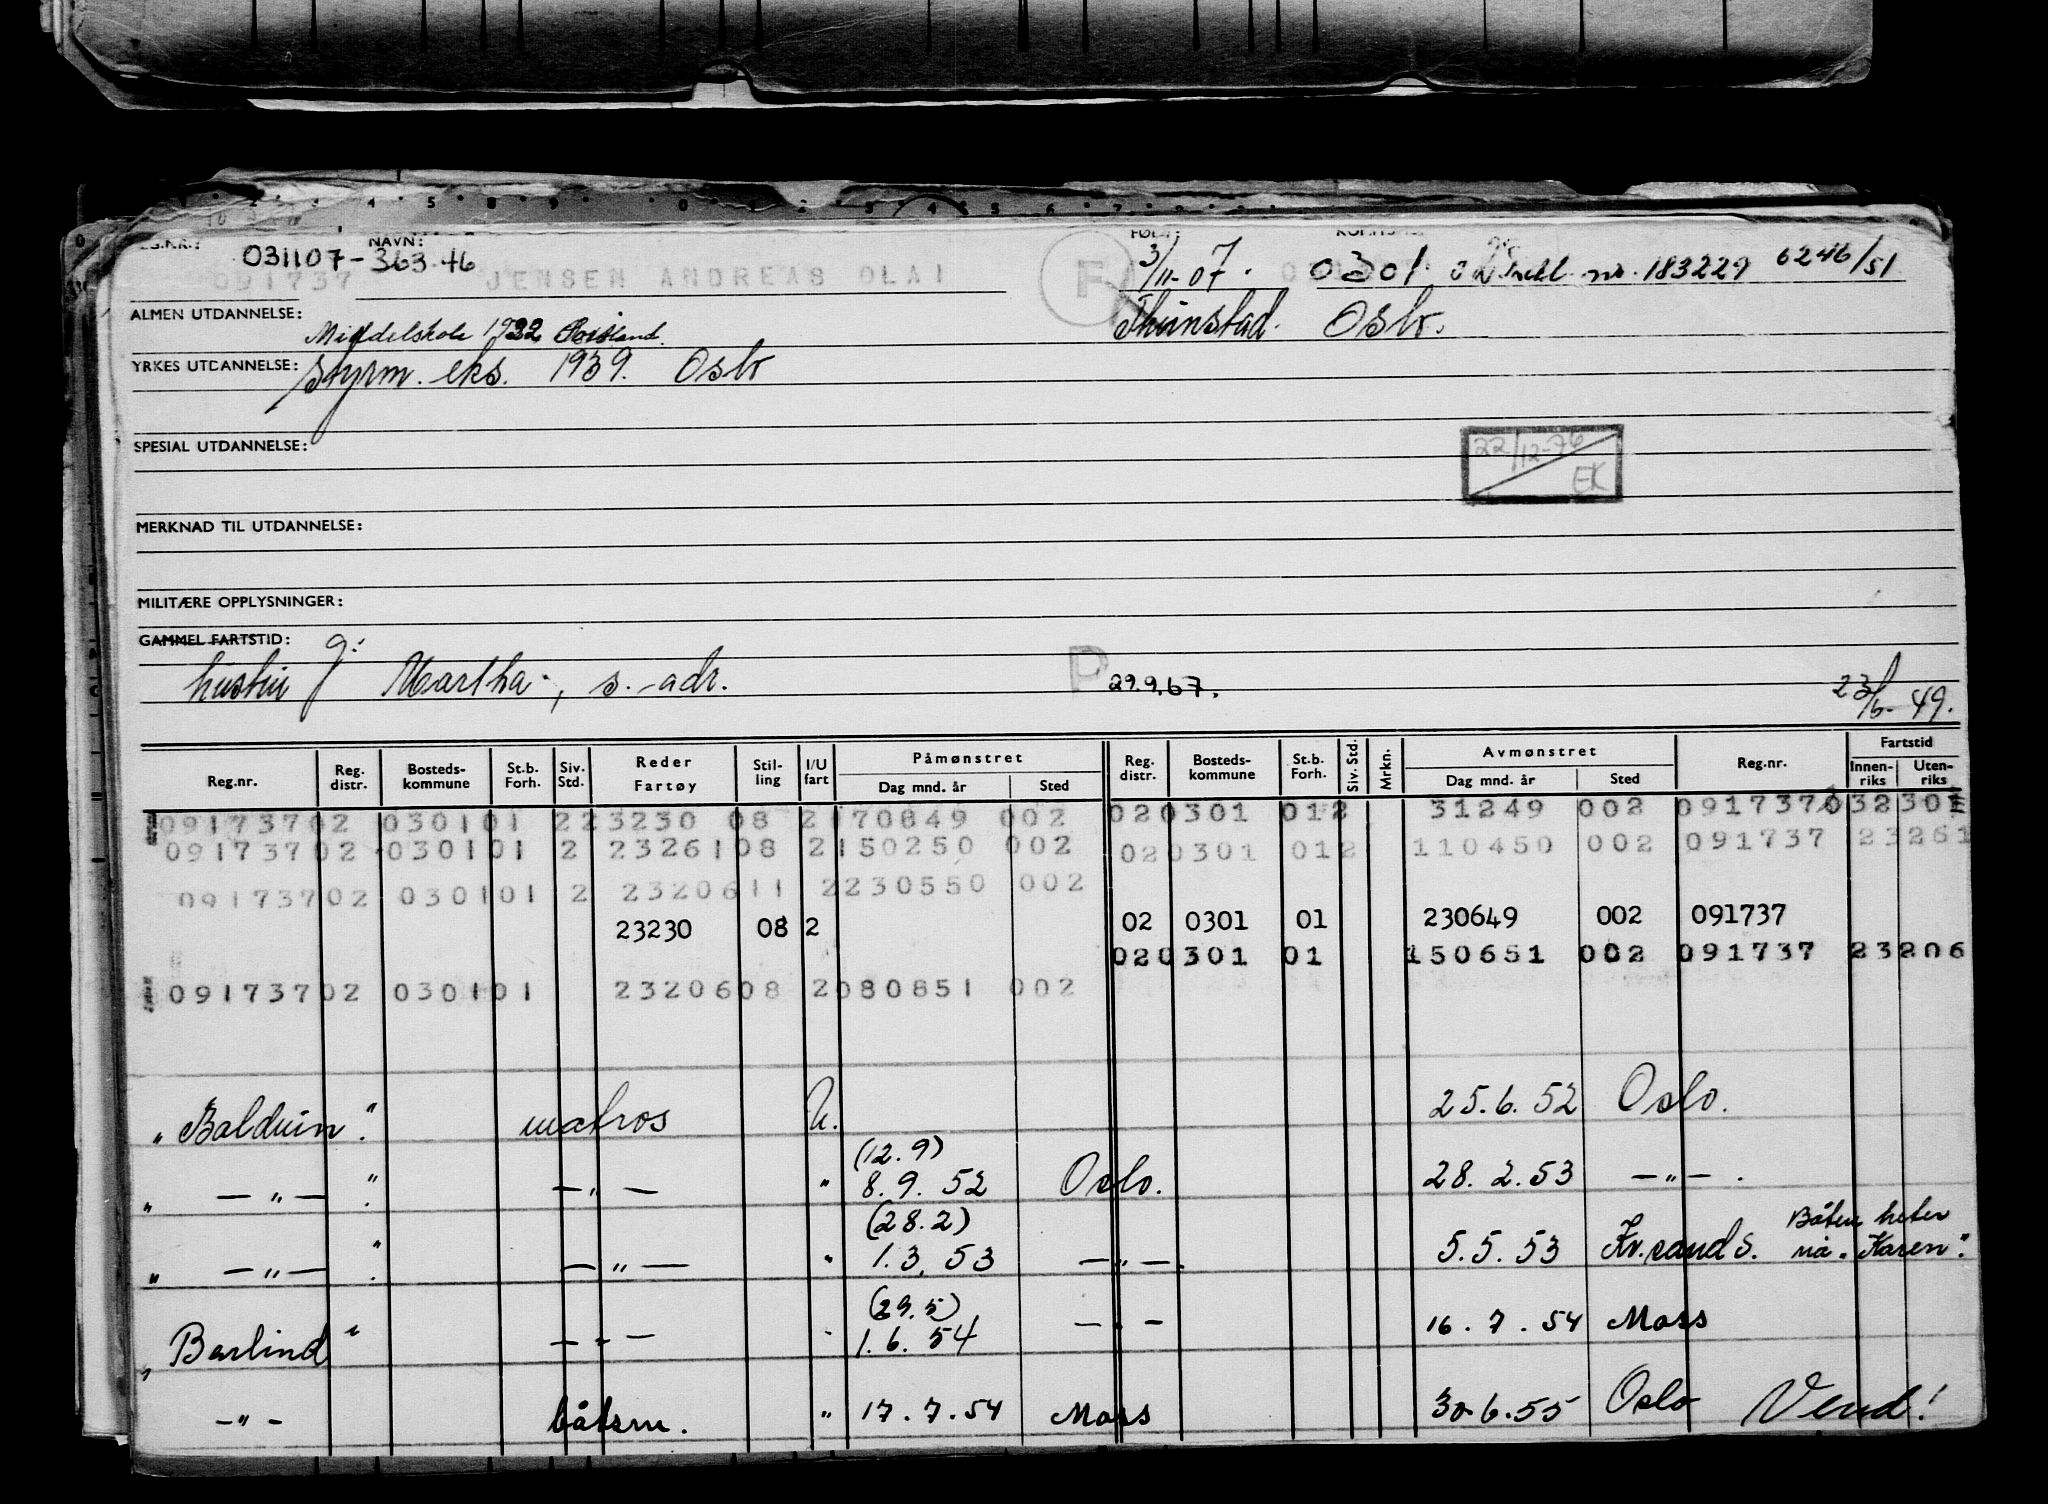 REG.NR.: NAVN: FØDT:
031107-363.46 3/11-07. 0301. 183229 6246/51
091737 JENSEN ANDREAS OLAI F
ALMEN UTDANNELSE: Middelskole 1922 Oslo.
YRKES UTDANNELSE: Styrm. eks. 1939. Oslo
SPESIAL UTDANNELSE: 22/12-76 EK
MERKNAD TIL UTDANNELSE:
MILITÆRE OPPLYSNINGER:
GAMMEL FARTSTID: g:
hustru Martha., s. adr. P 29.9.67. 49.
Reg.nr. Reg. distr. Bosteds- kommune St.b. Forh. Siv. Std. Reder Fartøy Stil- ling I/U fart Påmønstret Dag mnd. år Sted Reg. distr. Bosteds- kommune St.b. Forh. Siv. Std. Mrkn. Avmønstret Dag mnd. år Sted Reg.nr. Fartstid Innen- riks Uten- riks
091737 02 0301 01 2 23230 08 2 170849 002 02 0301 01 2 31249 002 091737
091737 02 0301 01 2 23261 08 2 150250 002 02 0301 01 2 110450 002 091737 23261
091737 02 0301 01 2 23206 11 2 230550 002
23230 08 2 02 0301 01 230649 002 091737
02 0301 01 150651 002 091737 23206
091737 02 0301 01 23206 08 2 080851 002
"Balduin". matros U. 25.6.52 Oslo.
(12.9)
" —"— ". —"— " 8.9.52 Oslo. 28.2.53 —"— .
(28.2) Båten heter
" —"— ". —"— " 1.3.53 —"—. 5.5.53 Kr.sand S. nå "Karen".
(29.5)
"Barlind" —"— " 1.6.54 —"— 16.7.54 Moss
—"— båtsm. " 17.7.54 Moss 30.6.55 Oslo Vend!